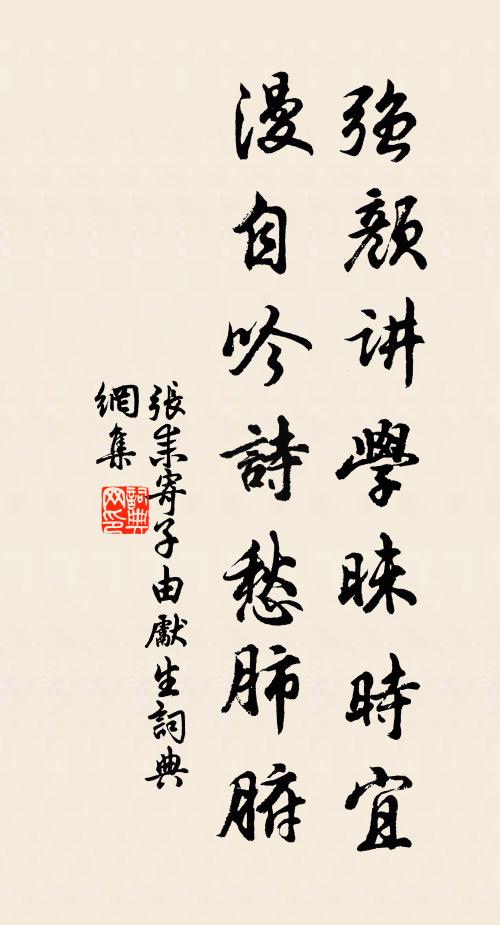 強顏讲學昧時宜
漫自吟詩愁肺腑
張耒寄子由獻生詞典
網集
詞典
网印